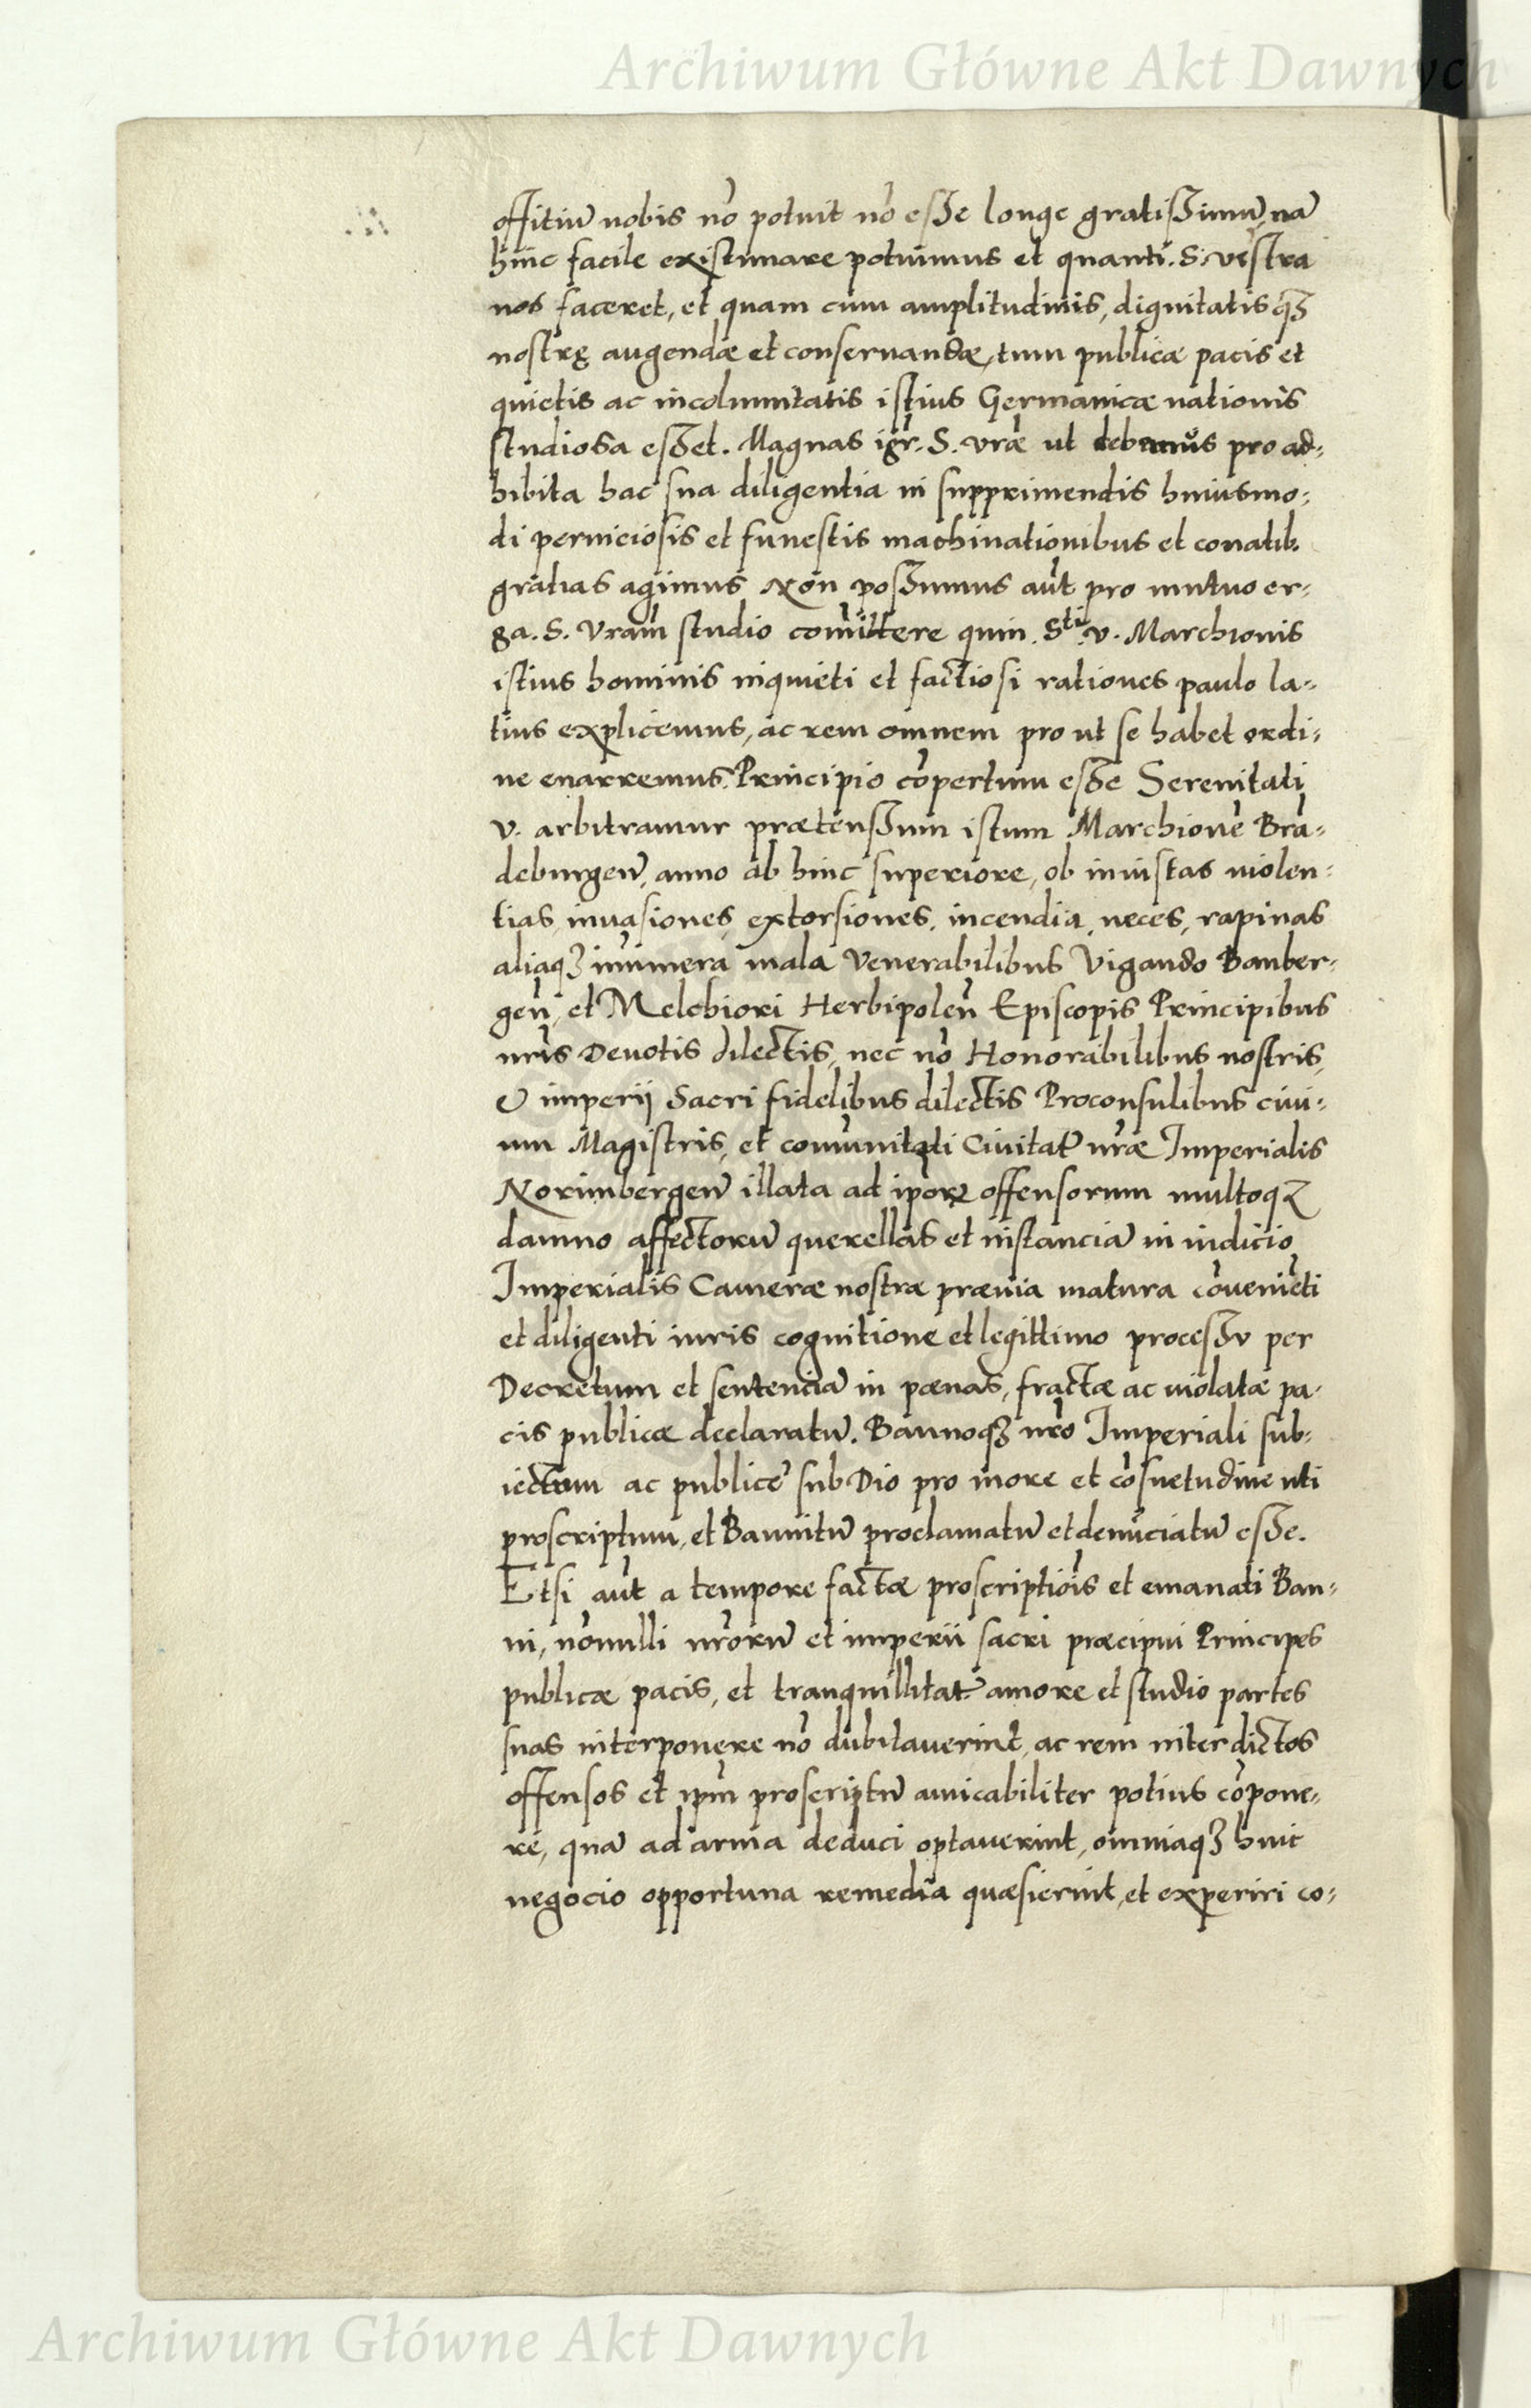 Archiwum Główne Akt Dawnych
offitiũ nobis nõ potuit nõ esse longe gratissimũ, nã
hinc facile existimare potuimus et quanti. S. vestra
nos faceret, et quam cum amplitudinis, dignitatisq᷒
nostrę augendæ et conseruandæ, tum publicæ pacis et
quietis ac incolumitatis istius Germanicæ nationis
studiosa esset. Magnas igr̃. S. vræ ut debemus pro ad-
hibita hac sua diligentia in supprimendis huiusmo-
di perniciosis et funestis machinationibus et conatib.
gratias agimus Non possumus aũt pro mutuo er-
ga. S. Vram̃ studio comittere quin. Sti. v. Marchionis
istius hominis inquieti et factiosi rationes paulo la-
tius explicemus, ac rem omnem pro ut se habet ordi-
ne enarremus. Principio cõpertum esse Serenitati
V. arbitramur prætensum istum Marchionẽ Brã-
deburgeñ, anno ab hinc superiore, ob iniustas violen-
tias, inuasiones, extorsiones, incendia, neces, rapinas
aliaq᷒ inũmera mala Venerabilibus Vigando Bamber-
geñ, et Melchiori Herbipoleñ Episcopis Principibus
nr̃is Deuotis dilectis, nec nõ Honorabilibus nostris,
& imperij Sacri fidelibus dilectis Proconsulibus ciui-
um Magistris, et comũnitati Ciuitat̃ nr̃æ Imperialis
Norimbergeñ illata ad ip̃oꝝ offensorum multoq᷒
damno affectorũ querellas et instanciã in iudicio
Imperialis Cameræ nostræ præuia matura cõueniẽti
et diligenti iuris cognitione et legittimo processu per
Decretum et sentenciã in pænas, fractæ ac violatæ pa-
cis publicæ declaratũ. Bannoq᷒ nr̃o Imperiali sub-
iectum ac publicè sub Dio pro more et cõsuetudine uti
proscriptum, et Bannitũ proclamatũ et denũciatũ esse.
Etsi aũt a tempore factæ proscriptiõis et emanati Ban-
ni, nõnulli nr̃orũ et imperii sacri præcipui Principes
publicæ pacis, et tranquillitat̃ amore et studio partes
suas interponere nõ dubitauerint, ac rem inter dictos
offensos et ip̃m proscriptũ amicabiliter potius cõpone-
re, quã ad arma deduci optauerint, omniaq᷒ huic
negocio opportuna remedia quæsierint, et experiri co-
Archiwum Główne Akt Dawnych